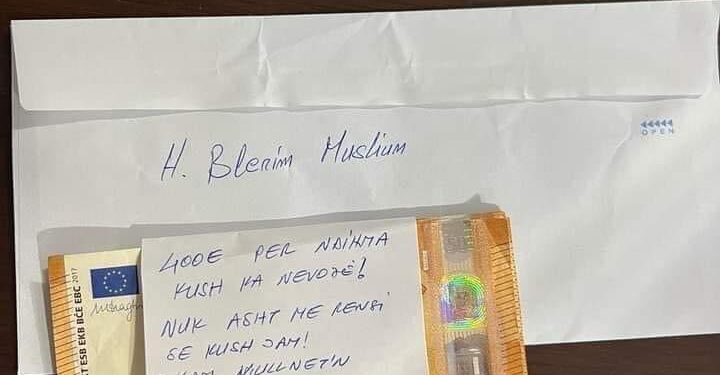 OPEN
H. Blerim Muslium
400E PER NDIHMA
KUSH KA NEVOJË!
NUK ASHT ME RENSI
SE KUSH JAM!
MULLNET'N
ESB EKB BĊE EBC 2017